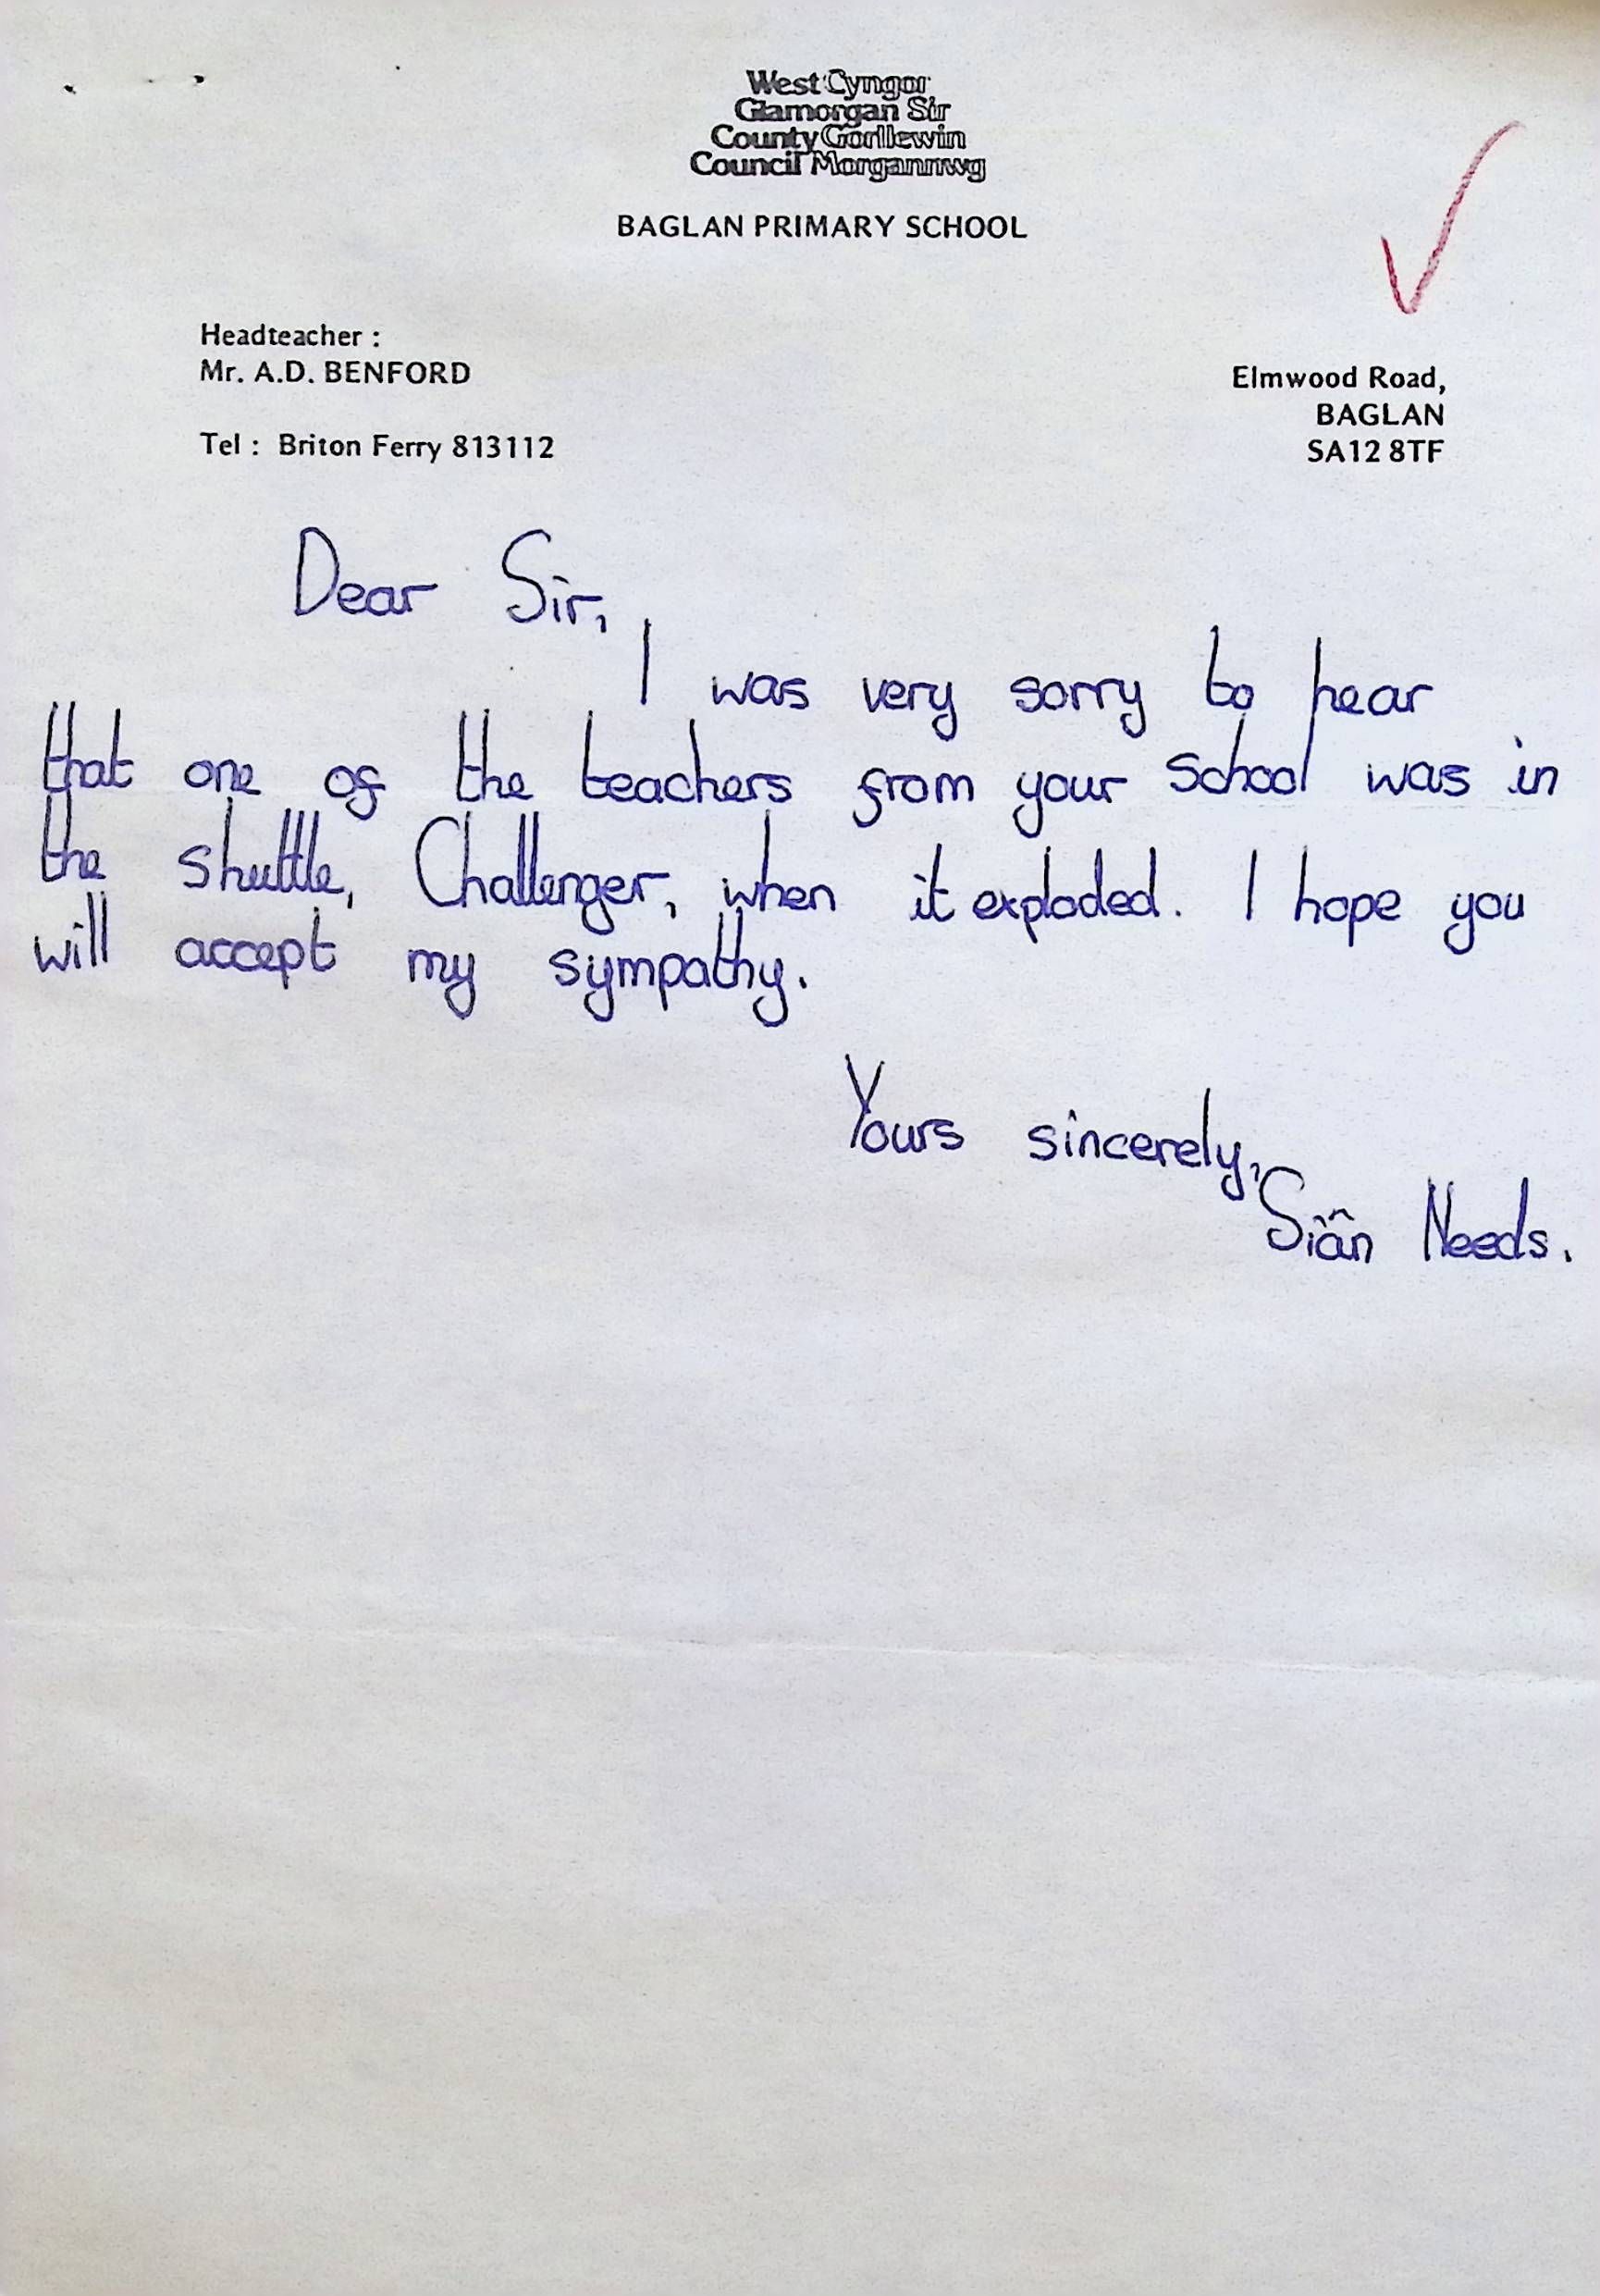 West Cyngor
Glamorgan Sir
County Gorllewin
Council Morgannwg
BAGLAN PRIMARY SCHOOL
Headteacher :
Mr. A.D. BENFORD
Tel : Briton Ferry 813112
Elmwood Road,
BAGLAN
SA12 8TF
Dear Sir,
I was very sorry to hear
that one of the teachers from your school was in
the shuttle, Challenger, when it exploded. I hope you
will accept my sympathy.
Yours sincerely,
Siân Needs.